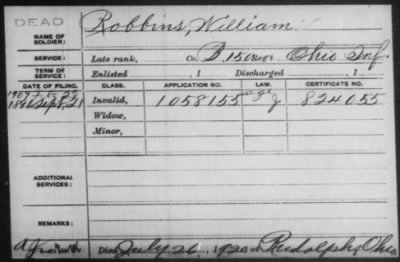 DEAD
NAME OF SOLDIER: Robbins, William
SERVICE: Late rank, Co. D, 150 Reg't Ohio Inf.
TERM OF SERVICE: Enlisted , 1 Discharged , 1
DATE OF FILING. CLASS. APPLICATION NO. LAW. CERTIFICATE NO.
1891 Sept. 21 Invalid, 1058155 824055
Widow,
Minor,
ADDITIONAL SERVICES:
REMARKS:
Died July 26, 1920 at Rudolph, Ohio